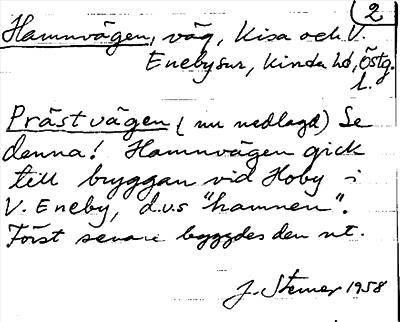 2
Hamnvägen, väg, Kisa och V.
Enebysnr, Kinda hd, Östg.
l.
Prästvägen (nu nedlagd) Se
denna! Hamnvägen gick
till bryggan vid Hoby i
V. Eneby, d.v.s "hamnen".
Först senare byggdes den ut.
J. Stener 1958